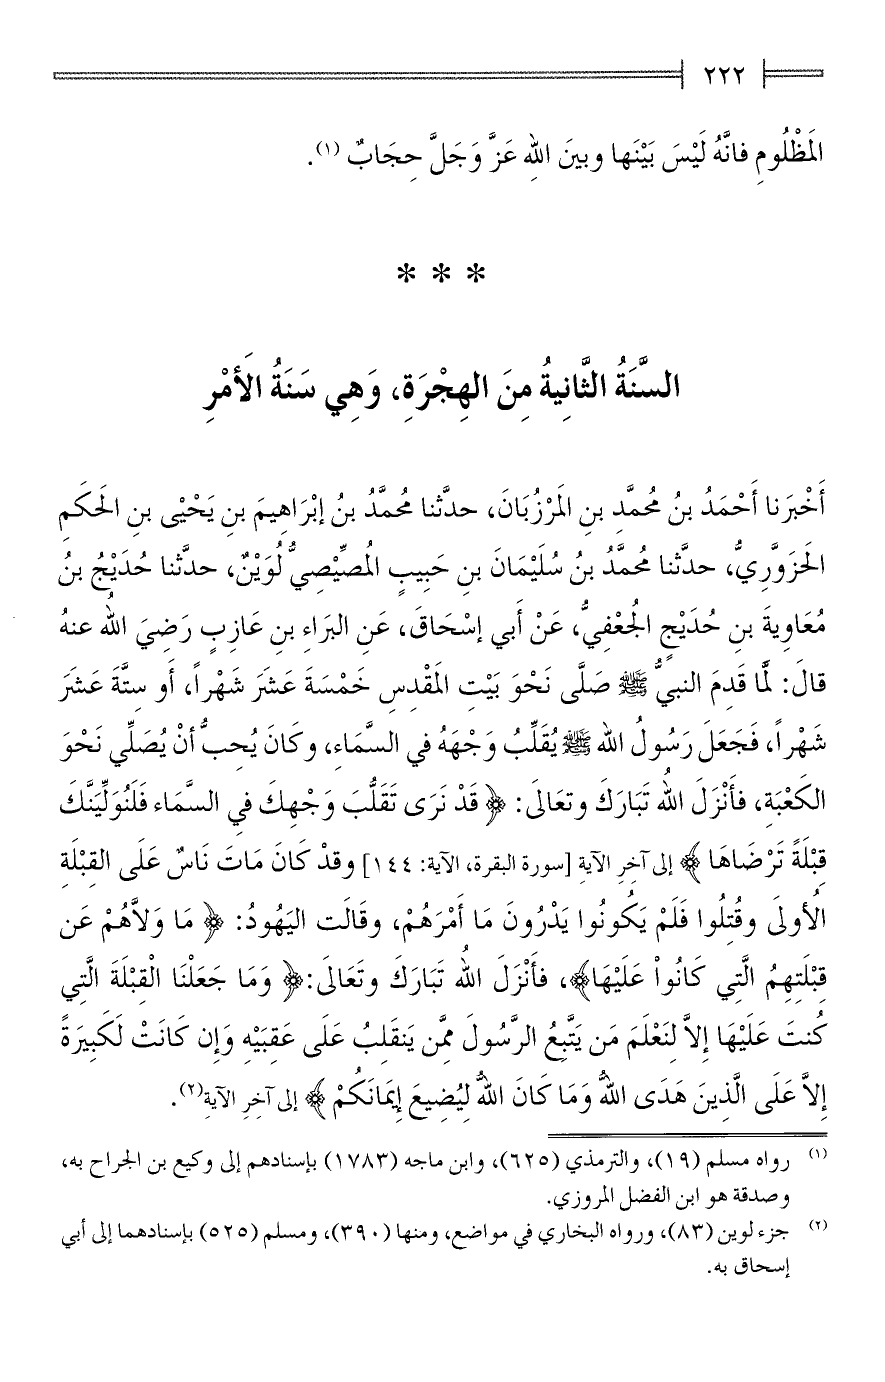 ٢٢٢
المَظْلُومِ فانَّهُ لَيْسَ بَيْنَها وبينَ اللهِ عَزَّ وَجَلَّ حِجَابٌ (١).
* * *
السَّنَةُ الثَّانِيةُ مِنَ الهِجْرَةِ، وَهِي سَنَةُ الأَمْرِ
أَخْبَرَنا أَحْمَدُ بنُ مُحمَّدِ بنِ المَرْزُبَانَ، حدثَّنا مُحمَّدُ بنُ إبْرَاهِيمَ بنِ يَحْيْى بنِ الحَكَمِ
الحَزَوَّرِيُّ، حدثَّنا مُحمَّدُ بنُ سُلَيْمَانَ بنِ حَبِيبٍ المُصيِّصِيُّ لُوَيْنٌ، حدثَّنا حُدَيْجُ بنُ
مُعَاوِيةَ بنِ حُدَيْجٍ الجُعْفِيُّ، عَنْ أَبي إسْحَاقَ، عَنِ البرَاءِ بنِ عَازِبٍ رَضِيَ اللهُ عنهُ
قالَ: لمَّا قَدِمَ النبيُّ ﷺ صَلَّى نَحْوَ بَيْتِ المَقْدِسِ خَمْسَةَ عَشَرَ شَهْراً، أَو ستَّةَ عَشَرَ
شَهْراً، فَجَعَلَ رَسُولُ اللهِ ﷺ يُقَلِّبُ وَجْهَهُ في السَّمَاءِ، وكَانَ يُحِبُّ أنْ يُصَلِّي نَحْوَ
الكَعْبَةِ، فأَنْزَلَ اللهُ تَبَارَكَ وتعَالَى: ﴿ قَدْ نَرَى تَقَلُّبَ وَجْهِكَ في السَّمَاء فَلَنُوَلِّيَنَّكَ
قِبْلَةً تَرْضَاهَا ﴾ إلى آخرِ الآيةِ [سورة البقرة، الآية: ١٤٤] وقدْ كَانَ مَاتَ نَاسٌ عَلَى القِبْلَةِ
الأُولَى وقُتِلُوا فَلَمْ يَكُونُوا يَدْرُونَ مَا أَمْرَهُمْ، وقالَت اليَهُودُ: ﴿ مَا وَلاَّهُمْ عَن
قِبْلَتِهِمُ الَّتِي كَانُواْ عَلَيْهَا﴾، فأَنْزَلَ اللهُ تَبَارَكَ وتَعَالَى:﴿ وَمَا جَعَلْنَا الْقِبْلَةَ الَّتِي
كُنتَ عَلَيْهَا إلاَّ لِنَعْلَمَ مَن يَتَّبِعُ الرَّسُولَ مِمَّن يَنقَلِبُ عَلَى عَقِبَيْهِ وَإِن كَانَتْ لَكَبِيرَةً
إلاَّ عَلَى الَّذِينَ هَدَى اللهُ وَمَا كَانَ اللهُ لِيُضِيعَ إِيمَانَكُمْ ﴾ إلى آخرِ الآيةِ(٢).
(١) رواه مسلم (١٩)، والترمذي (٦٢٥)، وابن ماجه (١٧٨٣) بإسنادهم إلى وكيع بن الجراح به،
وصدقة هو ابن الفضل المروزي.
(٢) جزء لوين (٨٣)، ورواه البخاري في مواضع، ومنها (٣٩٠)، ومسلم (٥٢٥) بإسنادهما إلى أبي
إسحاق به.